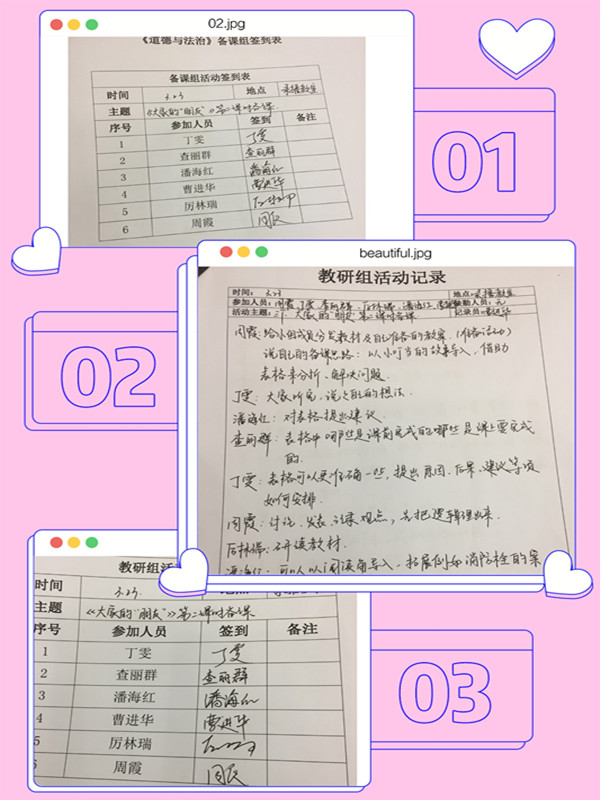 02.jpg
《道德与法治》备课组签到表
备课组活动签到表
时间 3.23 地点 录播教室
主题 《大家的"朋友"》第二课时备课
序号 参加人员 签到 备注
1 丁雯 丁雯
2 查丽群 查丽群
3 潘海红 潘海红
4 曹进华 曹进华
5 厉林瑞
6 周霞 周霞
01
beautiful.jpg
教研组活动记录
时间: 3.23 地点: 录播教室
参加人员: 周霞 丁雯 查丽群 厉林瑞 潘海红 曹进华 缺勤人员: 无
活动主题: 三下 大家的"朋友"第二课时备课 记录员: 曹进华
周霞: 给小组成员分发教材及自己准备的教案,(准备活动)
说自己的备课思路: 以小叮当的故事导入, 借助
表格来分析、解决问题.
丁雯: 大家听完, 说说自己的想法.
潘海红: 对表格提出建议.
查丽群: 表格中哪些是课前完成的哪些是课上要完成
的.
丁雯: 表格可以更准确一些, 提出原因、后果、建议等项
如何安排.
周霞: 讨论、发表、记录观点, 先把逻辑理出来.
厉林瑞: 研读教材.
潘海红: 可以从阅读角导入, 拓展例如消防栓的案
02
教研组活
时间 3.23.
主题 《大家的"朋友"》第二课时备课
序号 参加人员 签到 备注
1 丁雯 丁雯
2 查丽群 查丽群
3 潘海红 潘海红
4 曹进华 曹进华
5 厉林瑞
6 周霞 周霞
03